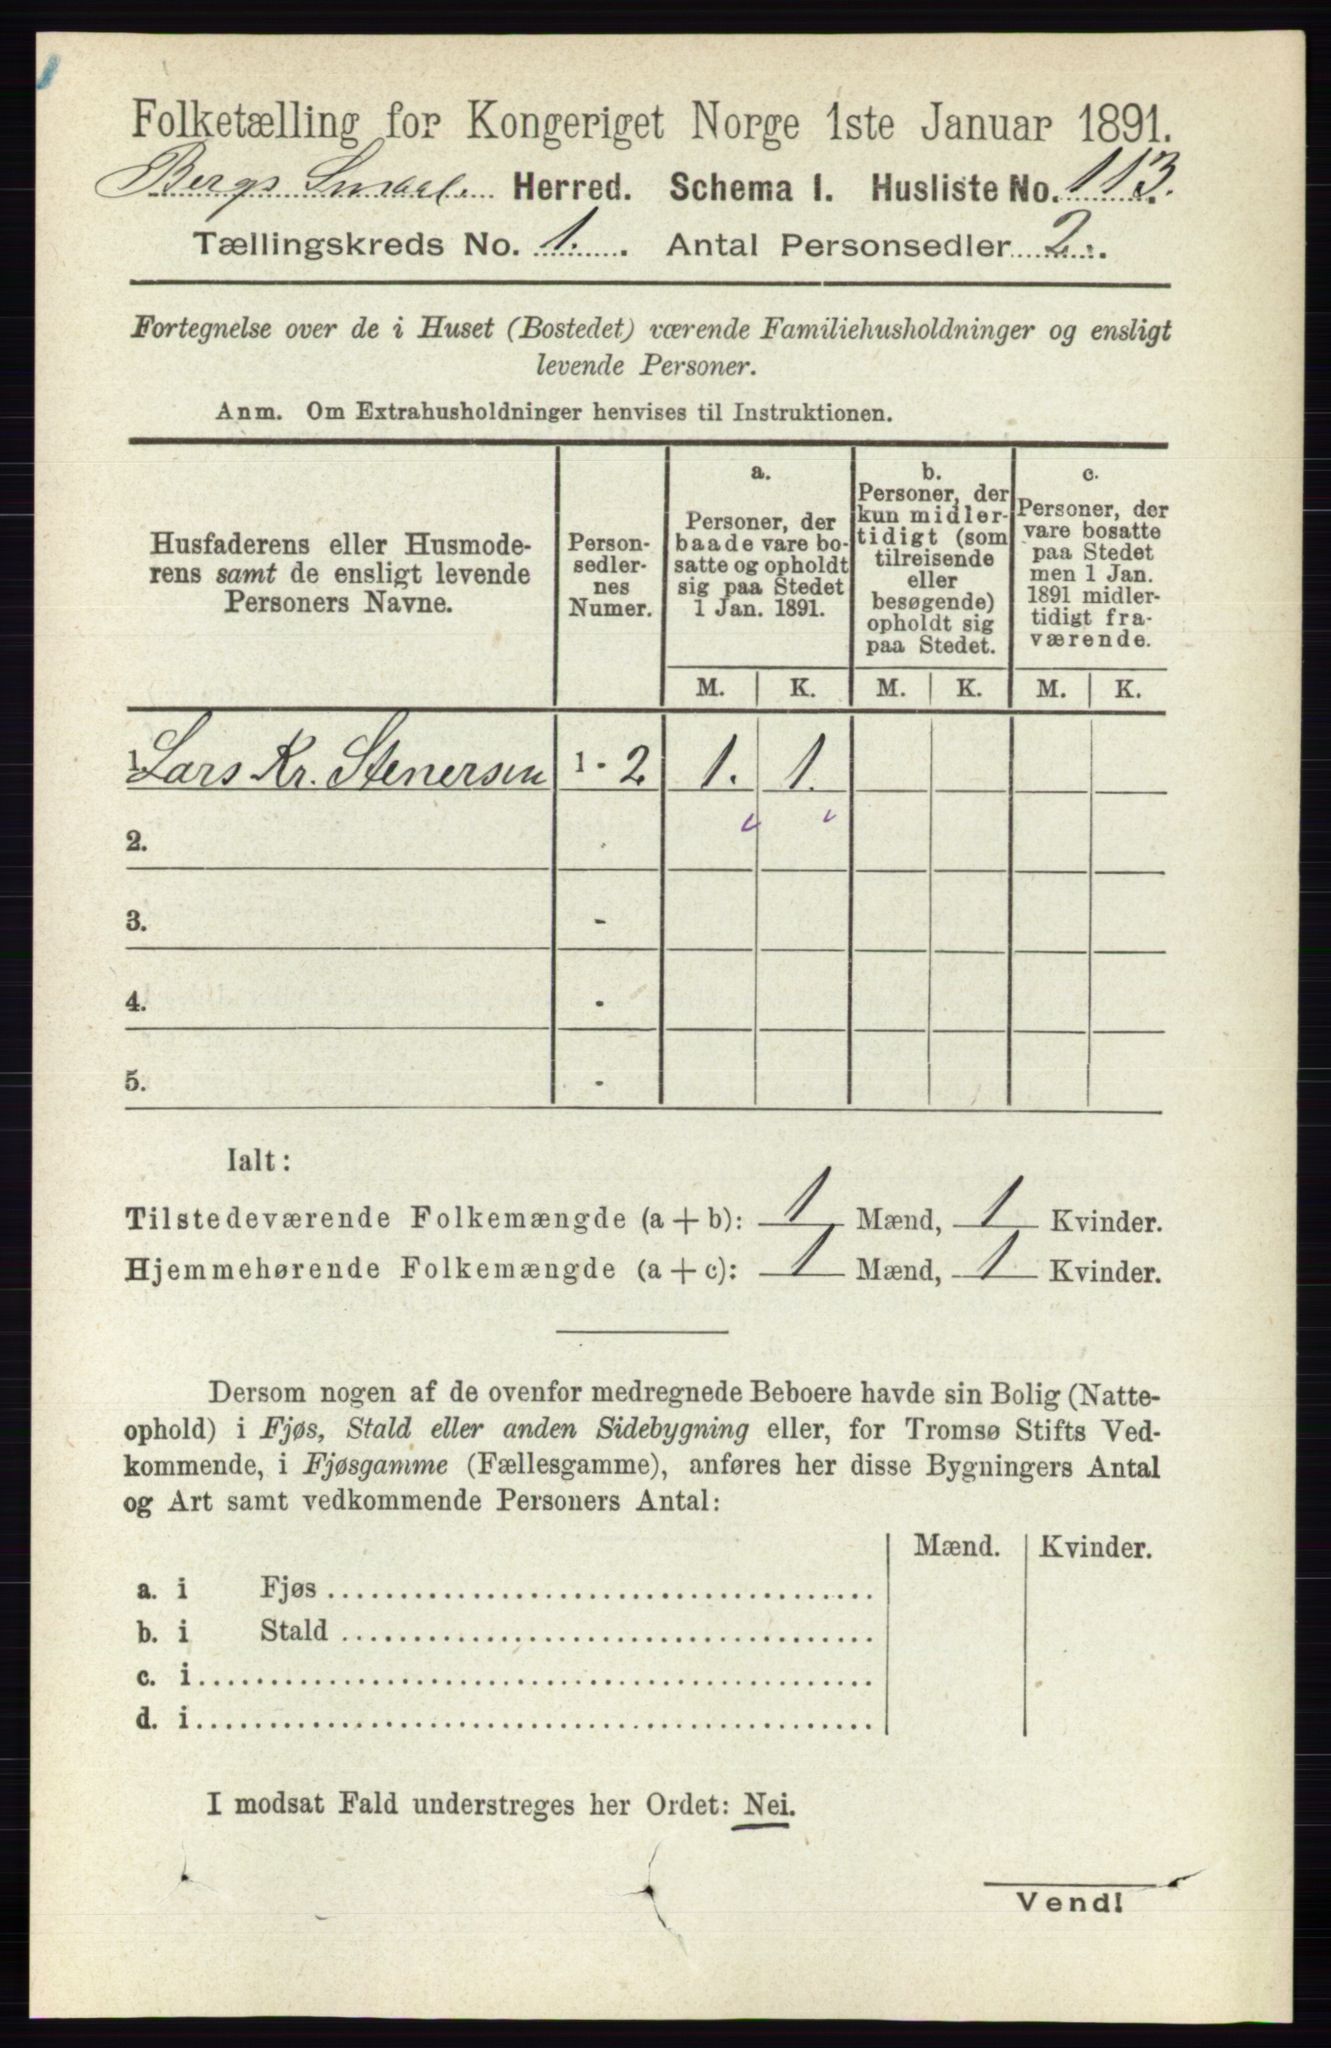 Folketælling for Kongeriget Norge 1ste Januar 1891.
Bergs Smaal. Herred. Schema 1. Husliste No. 113.
Tællingskreds No. 1. Antal Personsedler 2.
Fortegnelse over de i Huset (Bostedet) værende Familiehusholdninger og ensligt
levende Personer.
Anm. Om Extrahusholdninger henvises til Instruktionen.
Husfaderens eller Husmode-
rens samt de ensligt levende
Personers Navne.
Person-
sedler-
nes
Numer.
a.
Personer, der
baade vare bo-
satte og opholdt
sig paa Stedet
1 Jan. 1891.
b.
Personer, der
kun midler-
tidigt (som
tilreisende
eller
besøgende)
opholdt sig
paa Stedet.
c.
Personer, der
vare bosatte
paa Stedet
men 1 Jan.
1891 midler-
tidigt fra-
værende.
M. K. M. K. M. K.
1. Lars Kr. Stenersen 1 - 2 1. 1.
2. -
3. -
4. -
5. -
Ialt:
Tilstedeværende Folkemængde (a + b): 1 Mænd, 1 Kvinder.
Hjemmehørende Folkemængde (a + c): 1 Mænd, 1 Kvinder.
Dersom nogen af de ovenfor medregnede Beboere havde sin Bolig (Natte-
ophold) i Fjøs, Stald eller anden Sidebygning eller, for Tromsø Stifts Ved-
kommende, i Fjøsgamme (Fællesgamme), anføres her disse Bygningers Antal
og Art samt vedkommende Personers Antal:
Mænd. Kvinder.
a. i Fjøs
b. i Stald
c. i
d. i
I modsat Fald understreges her Ordet: Nei.
Vend!